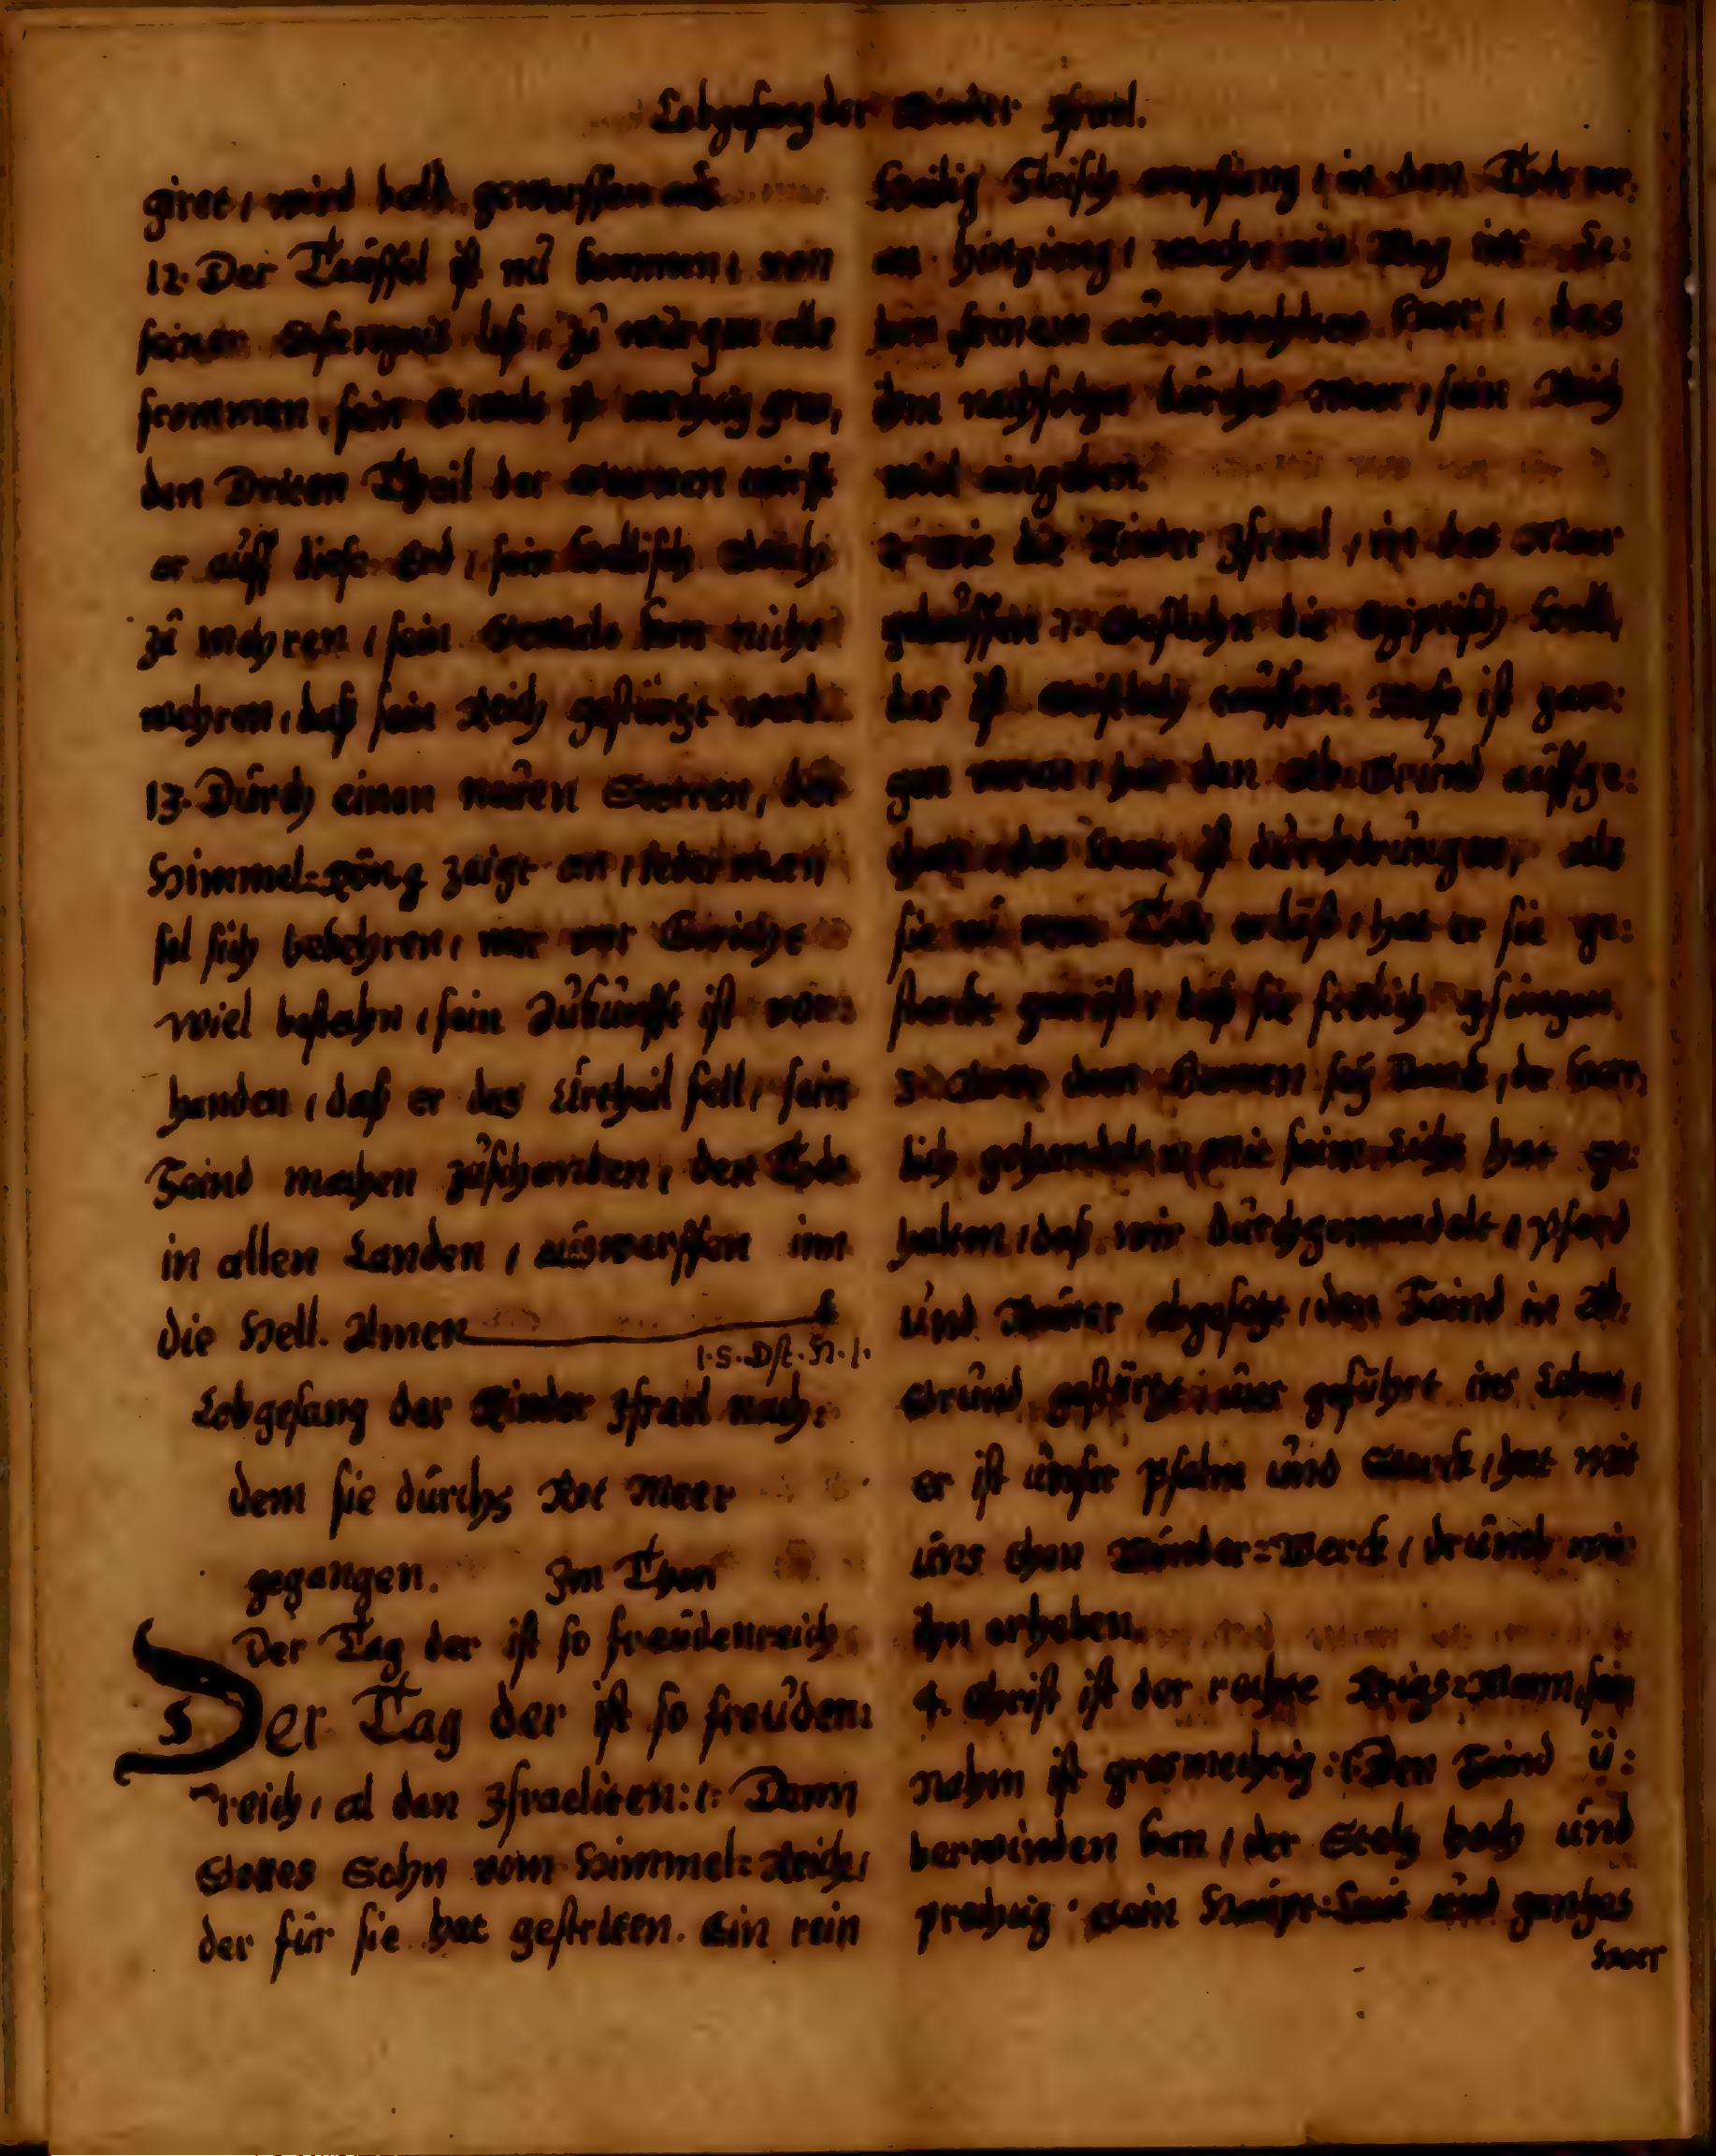 Lobgesang der Kinder Jsrael.
giret, wird bald geworffen aus
12. Der Teuffel ist nu kommen, von
seiner loß, zu würgen alle
frommen, sein ist
den Dritten Theil der wirfft
er auff diese Erd, sein Hellisch Reich
zu mehren, sein kan nicht
wehren, daß sein Reich gestürtzt werd
13. Durch einen neuen Sterren, der
Himmel=König zeigt an, Jederman
sol sich bekehren, wer vor Gericht
wiel bestehn, sein Zukunfft ist vor:
handen, daß er das Urtheil fell, sein
Feind machen zuschanden, den Tode
in allen Landen, auswerffen inn
die Hell. Amen
1.S.Dſt.H.1.
Lobgesang der Kinder Jsrael nach:
dem sie durchs Rot Meer
gegangen. Jm Thon
Der Tag der ist so freudenreich
Der Tag der ist so freuden:
reich, al den Jsraeliten:,: Denn
Gottes Sohn vom Himmel=Reich,
der für sie hat gestriten. Ein rein
Heilig Fleisch empfieng, in den Tode vor:
an hingieng, macht ein Weg ins Le:
ben seinem auserwehlten Heer, das
ihm nachfolget durchs Meer, sein Reich
wird eingeben.
2. wie die Kinder Jsrael, in das Meer
:,: die Egiptisch
der ist müssen. ist gan:
gen voran, hat den Ab=Grund auffge:
than, das ist durchdrungen, als
sie nu vom Tode erlößt, hat er sie ge:
sterckt getröst, daß sie frölich gsungen.
3. dem Herren sey Danck, der Herr:
lich gehandelt,:,: mit seim Liecht hat ge:
halten, daß wir durchgewandelt, Pferd
und Reuter abgesetzt, den Feind in Ab:
Grund gestürtzt, uns geführt ins Leben,
er ist unser Psalm und Sterck, hat mit
uns than Wunder=Werck, drumb wir
ihn erheben.
4. Christ ist der rechte Krigs=Mann, sein
Nahm ist grosmechtig:,: Den Feind ü:
berwinden kan, der Stoltz hoch und
prechtig. sein Haupt=Leut und gantzes
Heer